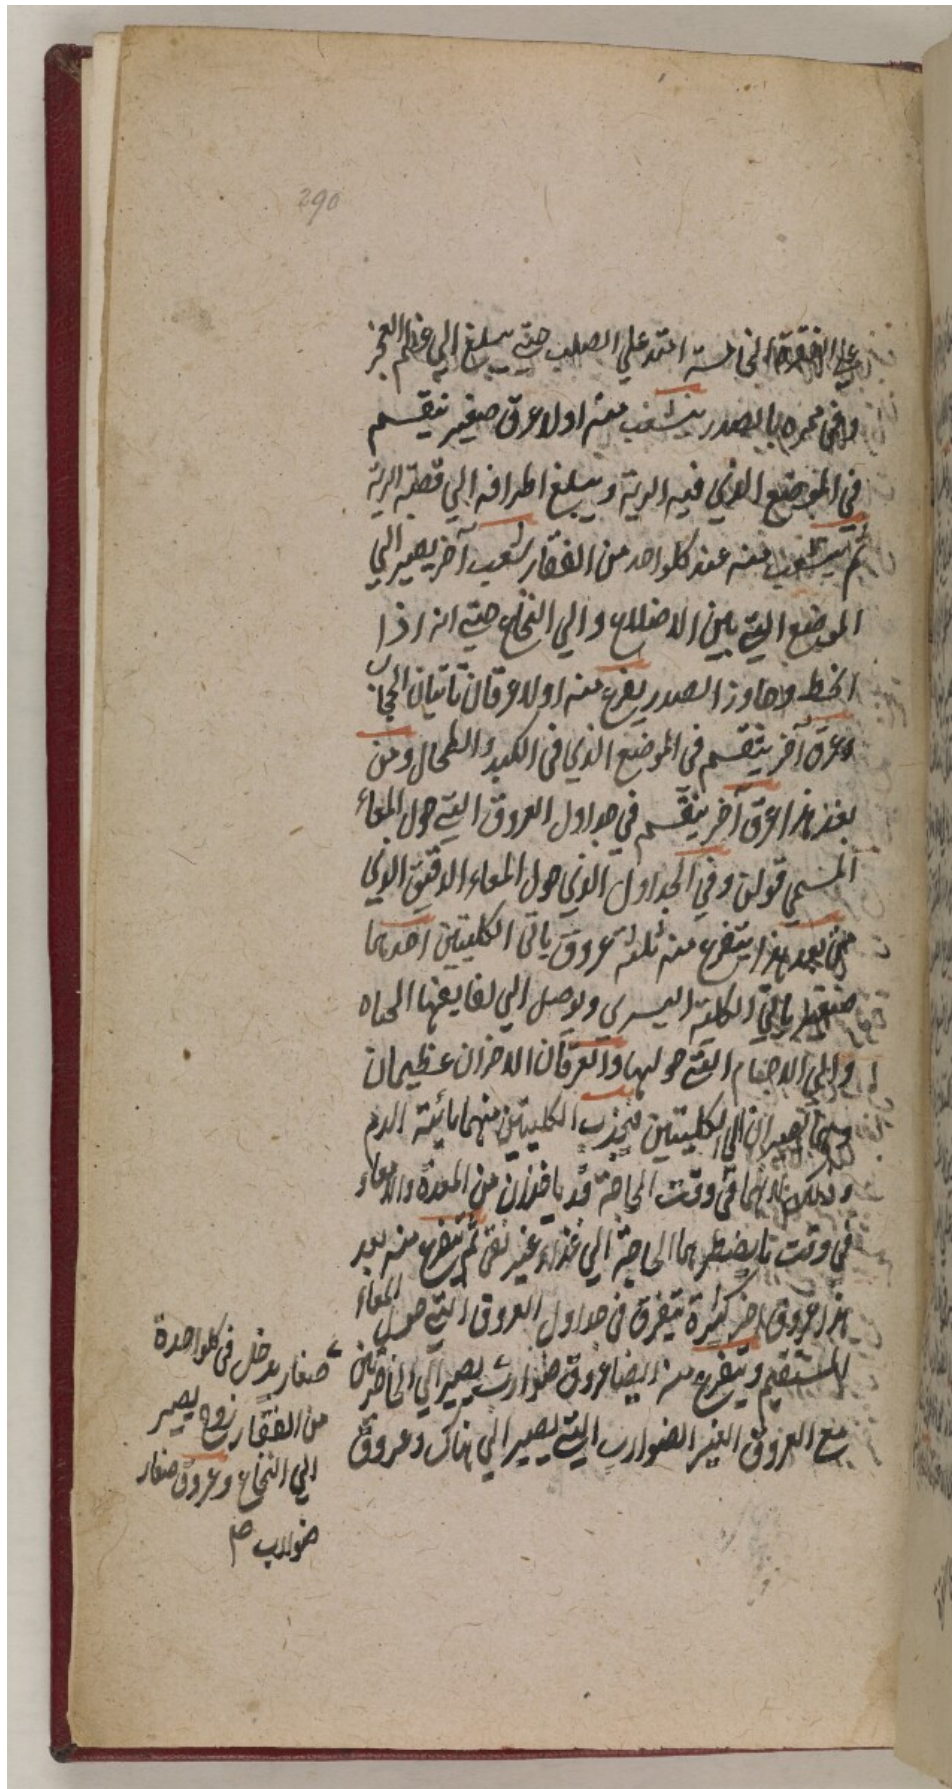 290
على الفقرة الخامسة امتد على الصلب حتى يبلغ الى عظم العجز
وفي ممره بالصدر يتشعب منه اولا عرق صغير ينقسم
في الموضع الذي فيه الرية ويبلغ اطرافه الى قصبة الرية
ثم يتشعب منه عند كلواحد من الفقار شعب آخر يصير الي
الموضع التي بين الاضلاع والي النخاع حتى انه اذا
انحط وجاوز الصدر يفرع منه اولا عرقان تاتيان الحجاب
وعرق آخر ينقسم في الموضع الذي في الكبد والطحال ومن
بعد هذا عرق آخر ينقسم في جداول العروق التي حول المعاء
المسمى قولن وفي الجداول الذي حول المعاء الدقيق الذي
من بعد هذا يتفرع منه ثلثة عروق ياتى الكليتين احدهما
صغير ياتي الكلية اليسرى ويوصل الي لفايفها الحياه
والي الاجسام التي حولها والعرقان الاخران عظيمان
وهما تصيران الى الكليتين فيجذب الكليتين منهما مائية الدم
وذلك انهما في وقت الحاجة قد ياخذان من المعدة والامعاء
في وقت ما يضطرهما الحاجة الي غذاء غير نقى ثم يتفرع منه بعد
هذا عروق اخر كثيرة يتفرق في جداول العروق التي حول المعاء
المستقيم ويتفرع منه ايضا عروق ضوارب يصير الي الخاصرتين
مع العروق الغير الضوارب التي يصير الي هناك وعروق
صغار يدخل في كلواحدة
من الفقار زوج يصير
الي النخاع وعروق صغار
ضوارب صح